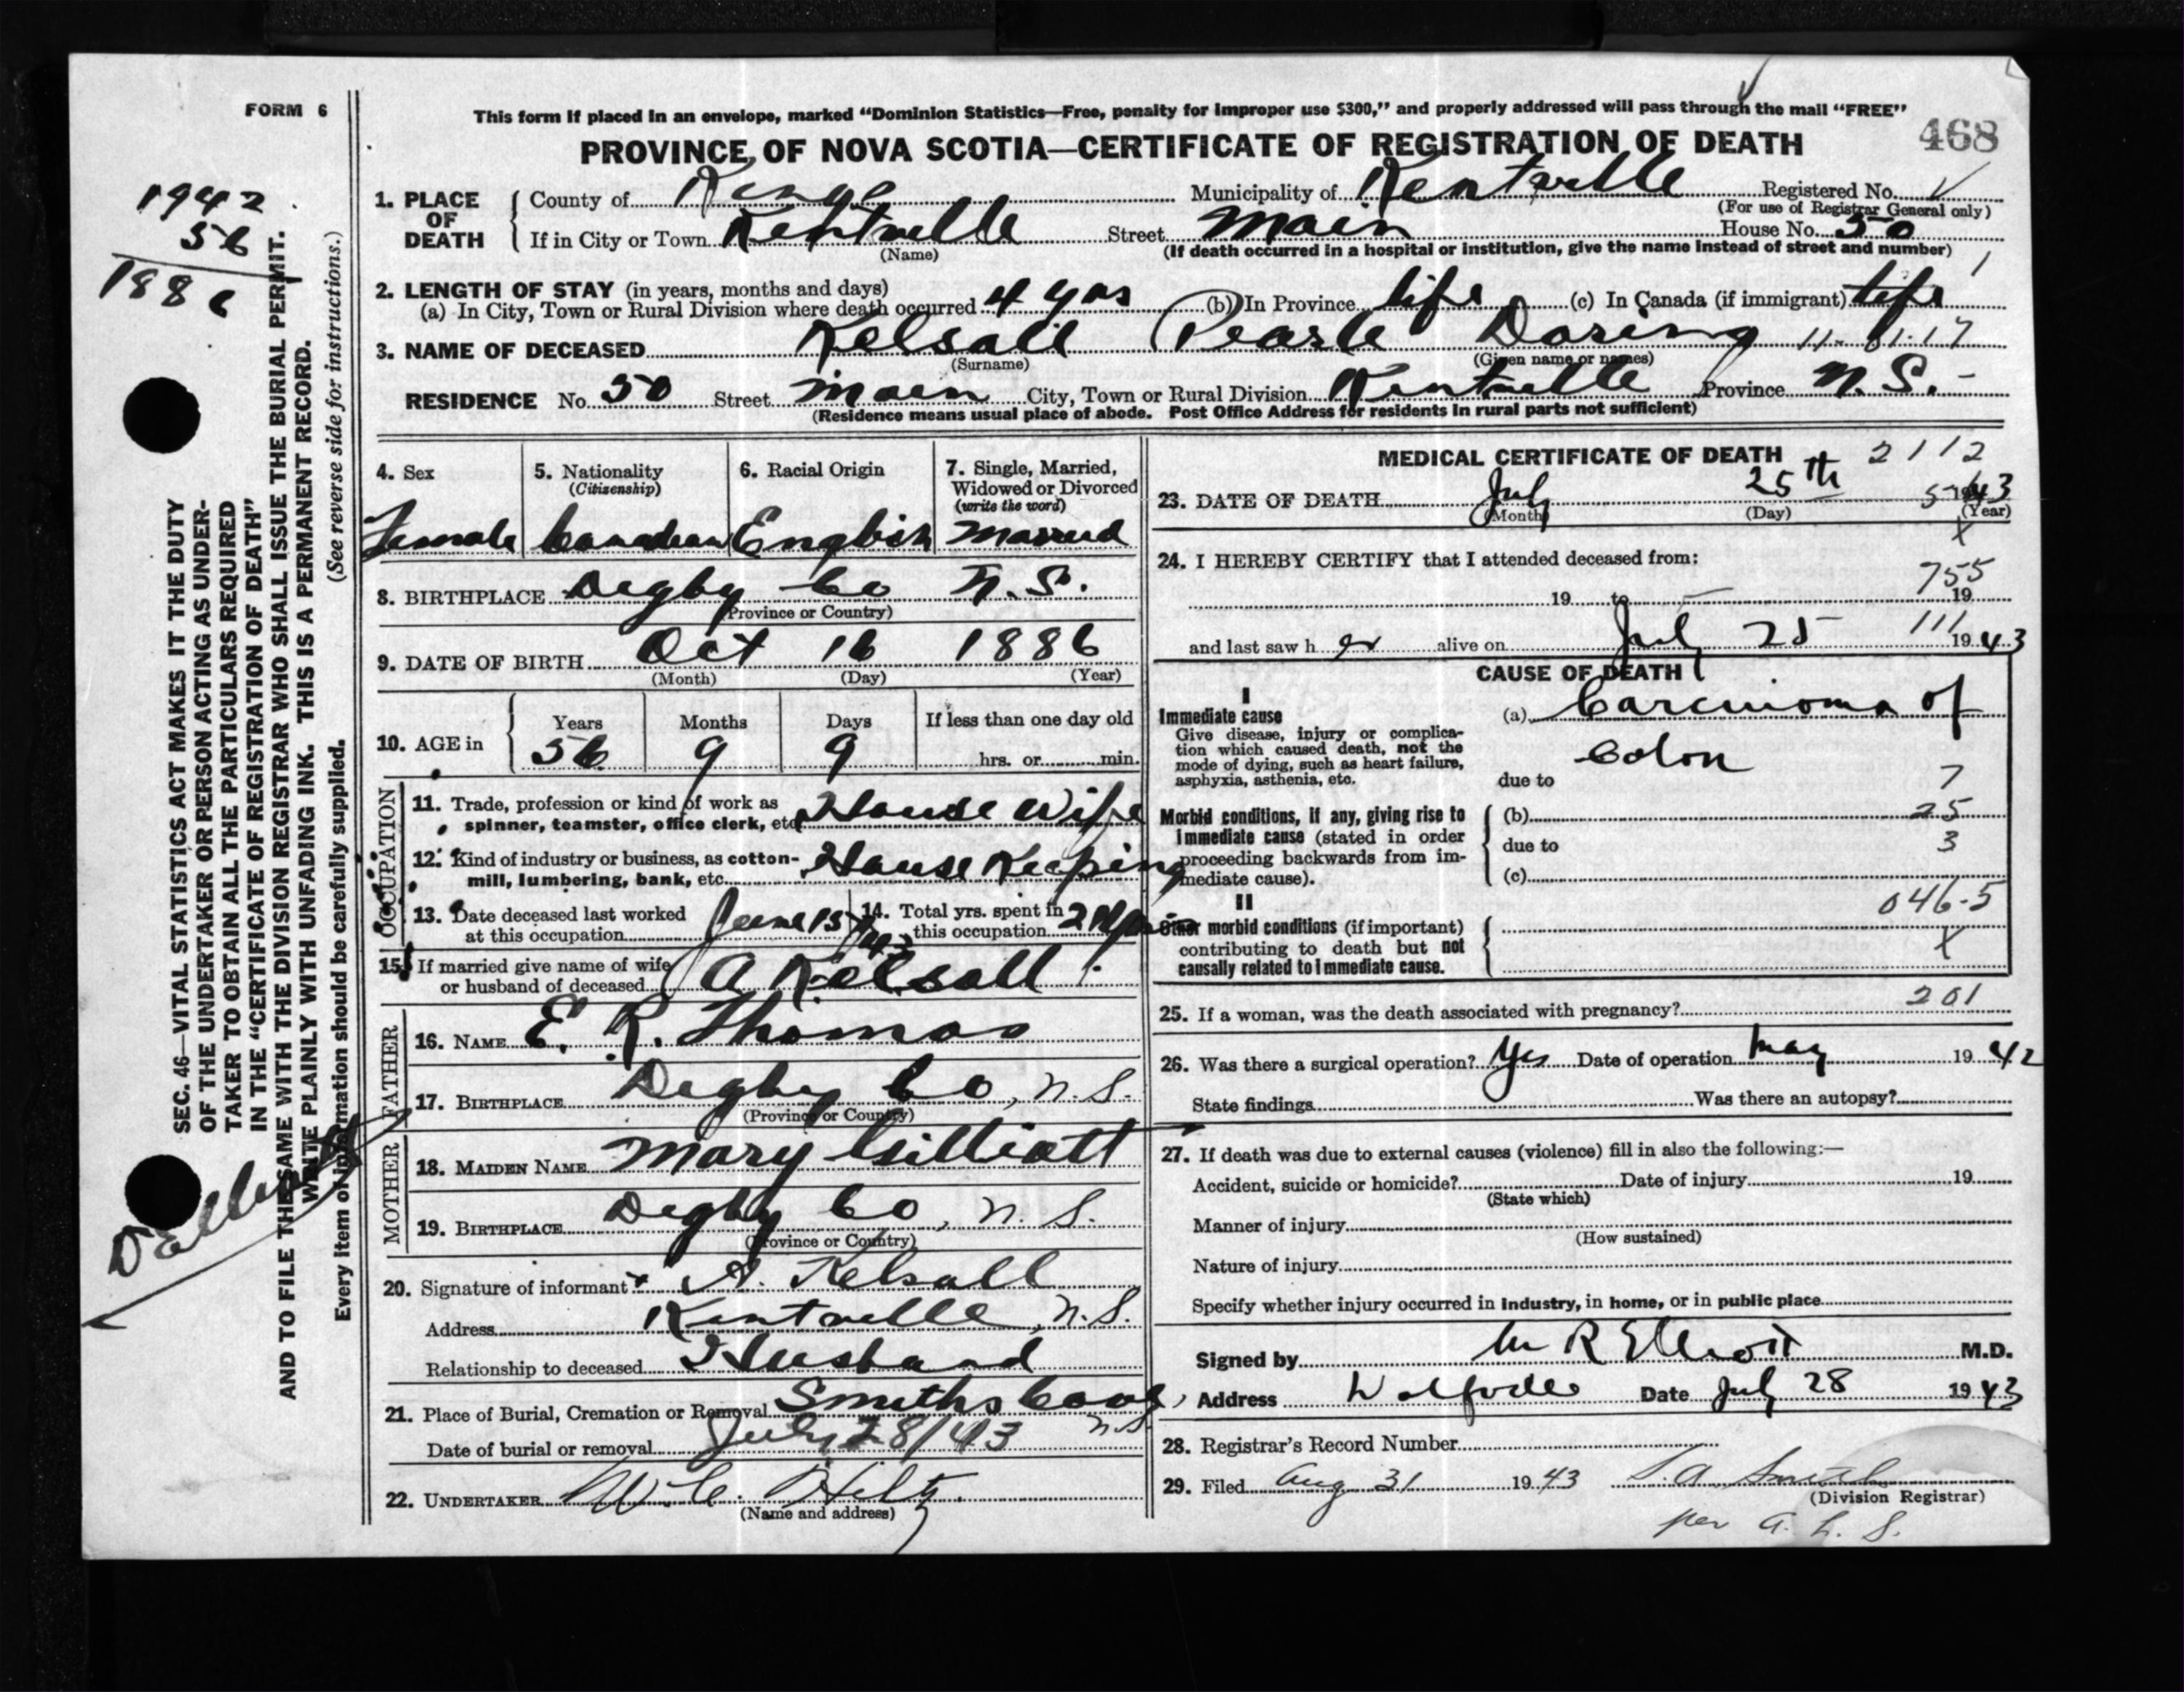 FORM 6
This form if placed in an envelope, marked “Dominion Statistics—Free, penalty for improper use $300,” and properly addressed will pass through the mail “FREE”
468
PROVINCE OF NOVA SCOTIA—CERTIFICATE OF REGISTRATION OF DEATH
1942
56
1886
1. PLACE OF DEATH
County of Kings Municipality of Kentville Registered No.
(For use of Registrar General only)
If in City or Town Kentville Street Main House No. 50
(Name) (If death occurred in a hospital or institution, give the name instead of street and number)
2. LENGTH OF STAY (in years, months and days)
(a) In City, Town or Rural Division where death occurred 4 yrs (b) In Province life (c) In Canada (if immigrant) life
3. NAME OF DECEASED Kelsall Pearle
(Surname) (Given name or names)
RESIDENCE No. 50 Street Main City, Town or Rural Division Kentville Province N.S.
(Residence means usual place of abode. Post Office Address for residents in rural parts not sufficient)
4. Sex
Female
5. Nationality
(Citizenship)
Canadian
6. Racial Origin
English
7. Single, Married,
Widowed or Divorced
(write the word)
Married
8. BIRTHPLACE Digby Co N.S.
(Province or Country)
9. DATE OF BIRTH Oct 16 1886
(Month) (Day) (Year)
10. AGE in
Years Months Days If less than one day old
56 9 9 hrs. or min.
OCCUPATION
11. Trade, profession or kind of work as
spinner, teamster, office clerk, etc. House Wife
12. Kind of industry or business, as cotton-
mill, lumbering, bank, etc. House Keeping
13. Date deceased last worked
at this occupation June 15 1943
14. Total yrs. spent in
this occupation
15. If married give name of wife
or husband of deceased A Kelsall
FATHER
16. NAME E. R. Thomas
17. BIRTHPLACE Digby Co, N.S.
(Province or Country)
MOTHER
18. MAIDEN NAME Mary Gilliatt
19. BIRTHPLACE Digby Co, N.S.
(Province or Country)
20. Signature of informant A. Kelsall
Address Kentville, N.S.
Relationship to deceased Husband
21. Place of Burial, Cremation or Removal Smiths Cove, N.S.
Date of burial or removal July 28/43
22. UNDERTAKER W. C. Hiltz
(Name and address)
MEDICAL CERTIFICATE OF DEATH 2112
23. DATE OF DEATH July 25th 1943
(Month) (Day) (Year)
24. I HEREBY CERTIFY that I attended deceased from:
755
19 to 19
111
and last saw her alive on July 25 1943
CAUSE OF DEATH
I
Immediate cause
Give disease, injury or complica-
tion which caused death, not the
mode of dying, such as heart failure,
asphyxia, asthenia, etc.
(a) Carcinoma of
Colon
due to 7
Morbid conditions, if any, giving rise to
immediate cause (stated in order
proceeding backwards from im-
mediate cause).
(b) 25
due to 3
(c)
046-5
II
Other morbid conditions (if important)
contributing to death but not
causally related to immediate cause.
X
25. If a woman, was the death associated with pregnancy? 201
26. Was there a surgical operation? Yes Date of operation May 1942
State findings Was there an autopsy?
27. If death was due to external causes (violence) fill in also the following:—
Accident, suicide or homicide? Date of injury 19
(State which)
Manner of injury
(How sustained)
Nature of injury
Specify whether injury occurred in industry, in home, or in public place
Signed by M R Elliott M.D.
Address Wolfville Date July 28 1943
28. Registrar's Record Number
29. Filed Aug 31 1943
(Division Registrar)
per A. L. S.
SEC. 46—VITAL STATISTICS ACT MAKES IT THE DUTY
OF THE UNDERTAKER OR PERSON ACTING AS UNDER-
TAKER TO OBTAIN ALL THE PARTICULARS REQUIRED
IN THE “CERTIFICATE OF REGISTRATION OF DEATH”
AND TO FILE THE SAME WITH THE DIVISION REGISTRAR WHO SHALL ISSUE THE BURIAL PERMIT.
WRITE PLAINLY WITH UNFADING INK. THIS IS A PERMANENT RECORD.
(See reverse side for instructions.)
Every item of information should be carefully supplied.